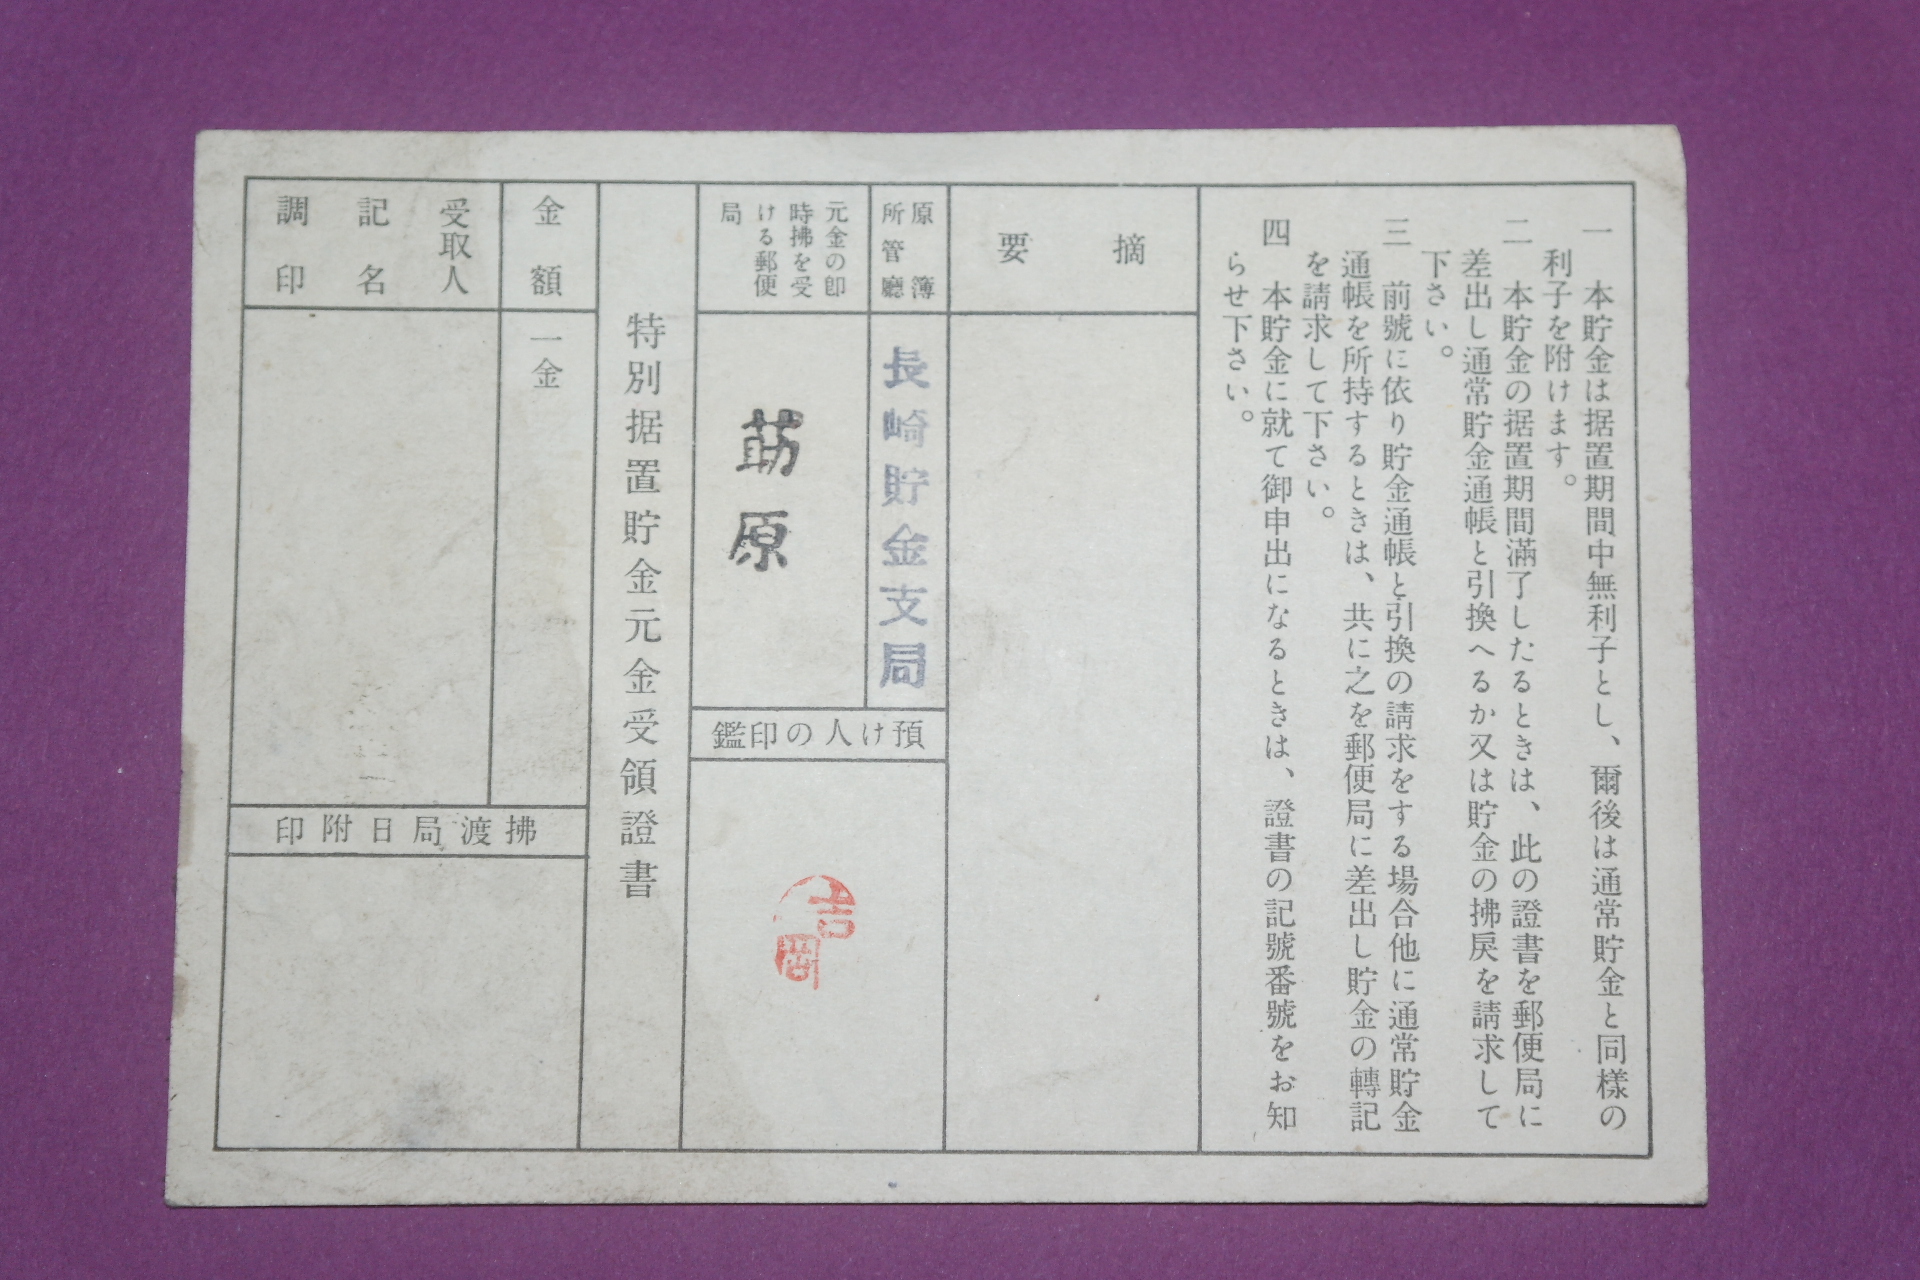 一　本貯金は据置期間中無利子とし、爾後は通常貯金と同様の
利子を附けます。
二　本貯金の据置期間滿了したるときは、此の證書を郵便局に
差出し通常貯金通帳と引換へるか又は貯金の拂戻を請求して
下さい。
三　前號に依り貯金通帳と引換の請求をする場合他に通常貯金
通帳を所持するときは、共に之を郵便局に差出し貯金の轉記
を請求して下さい。
四　本貯金に就て御申出になるときは、證書の記號番號をお知
らせ下さい。
摘要
原簿
所管廳
長崎貯金支局
元金の卽
時拂を受
ける郵便
局
莇原
預け人の印鑑
吉岡
特別据置貯金元金受領證書
金額
一金
受取人
記名
調印
拂渡局日附印